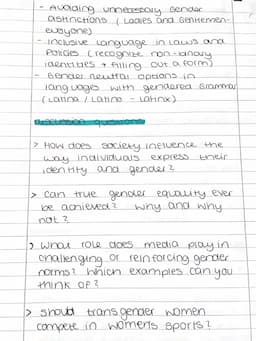 - Avoiding unnecessary gender
distinctions (Ladies and Gentlemen-
everyone)
- Inclusive language in laws and
Policies (recognize non-binary
identities + filling out a form)
- Gender neutral options in
languages with gendered grammar
(Latina / Latino - Latinx)
> How does society influence the
way individuals express their
identity and gender?
> Can true gender equality ever
be achieved? Why and why
not?
> What role does media play in
challenging or reinforcing gender
norms? Which examples can you
think of?
> Should transgender women
compete in women's sports?